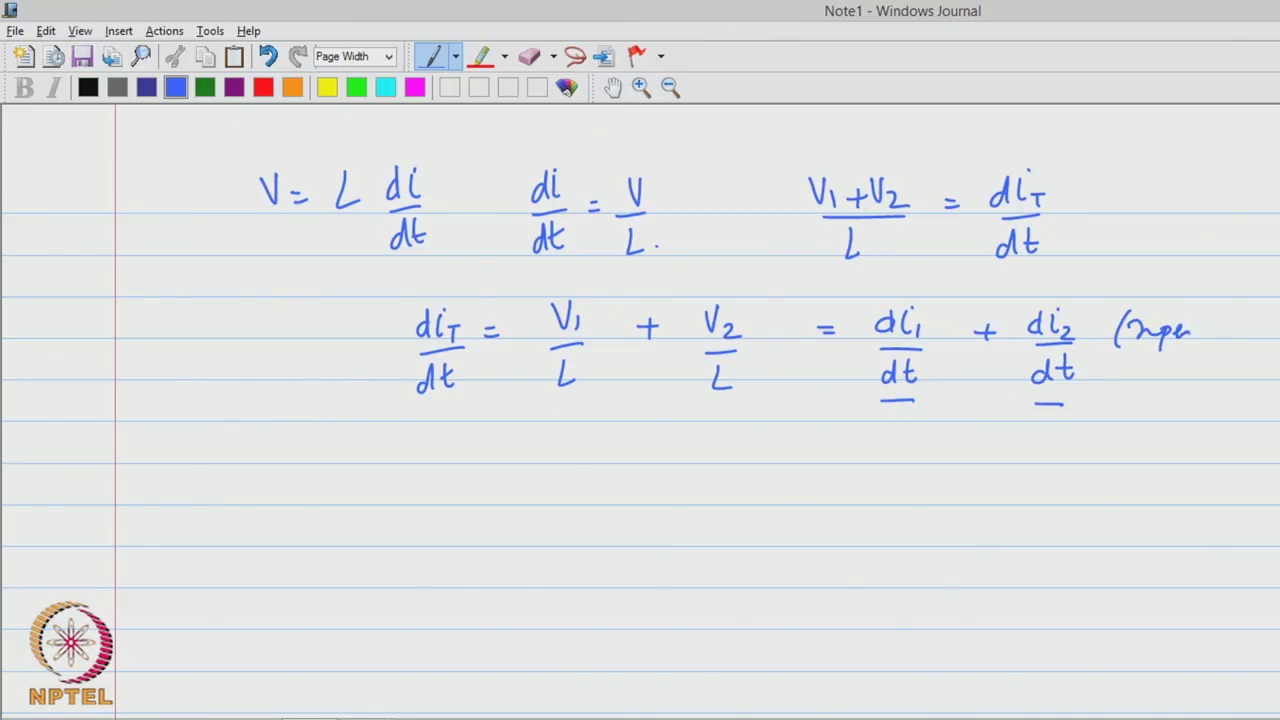 Note1 - Windows Journal
File Edit View Insert Actions Tools Help
Page Width
B I
V = L di/dt di/dt = V/L . (V1 + V2)/L = diT/dt
diT/dt = V1/L + V2/L = di1/dt + di2/dt
NPTEL